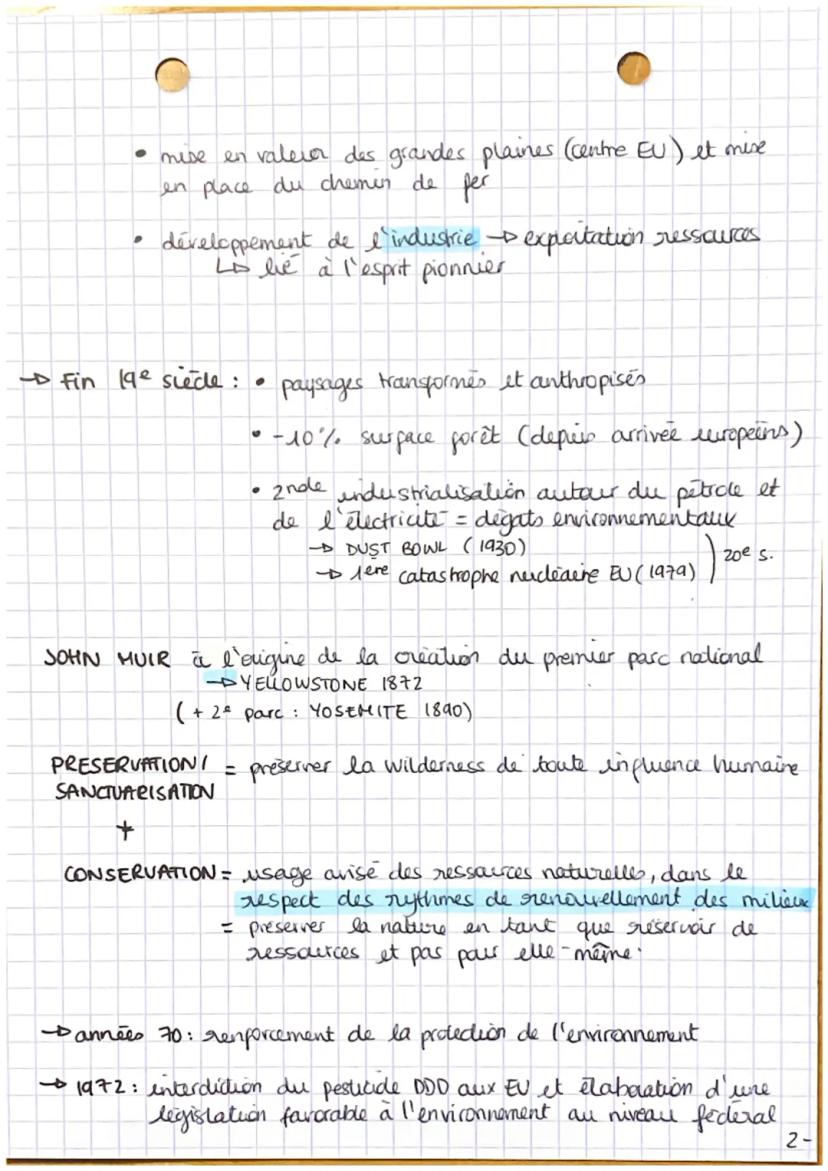 • mise en valeur des grandes plaines (centre EU) et mise
en place du chemin de fer
• développement de l'industrie → exploitation ressources
↳ lié à l'esprit pionnier
→ Fin 19e siècle : • paysages transformés et anthropisés
• -10% surface forêt (depuis arrivée européens)
• 2nde industrialisation autour du pétrole et
de l'électricité = dégats environnementaux
→ DUST BOWL (1930)
→ 1ère catastrophe nucléaire EU (1979) ) 20e s.
JOHN MUIR à l'origine de la création du premier parc national
→ YELLOWSTONE 1872
(+ 2e parc : YOSEMITE 1890)
PRESERVATION / = préserver la wilderness de toute influence humaine
SANCTUARISATION
+
CONSERVATION = usage avisé des ressources naturelles, dans le
respect des rythmes de renouvellement des milieux
= préserver la nature en tant que réservoir de
ressources et pas pour elle-même.
→ années 70 : renforcement de la protection de l'environnement
→ 1972 : interdiction du pesticide DDD aux EU et élaboration d'une
législation favorable à l'environnement au niveau fédéral
2-